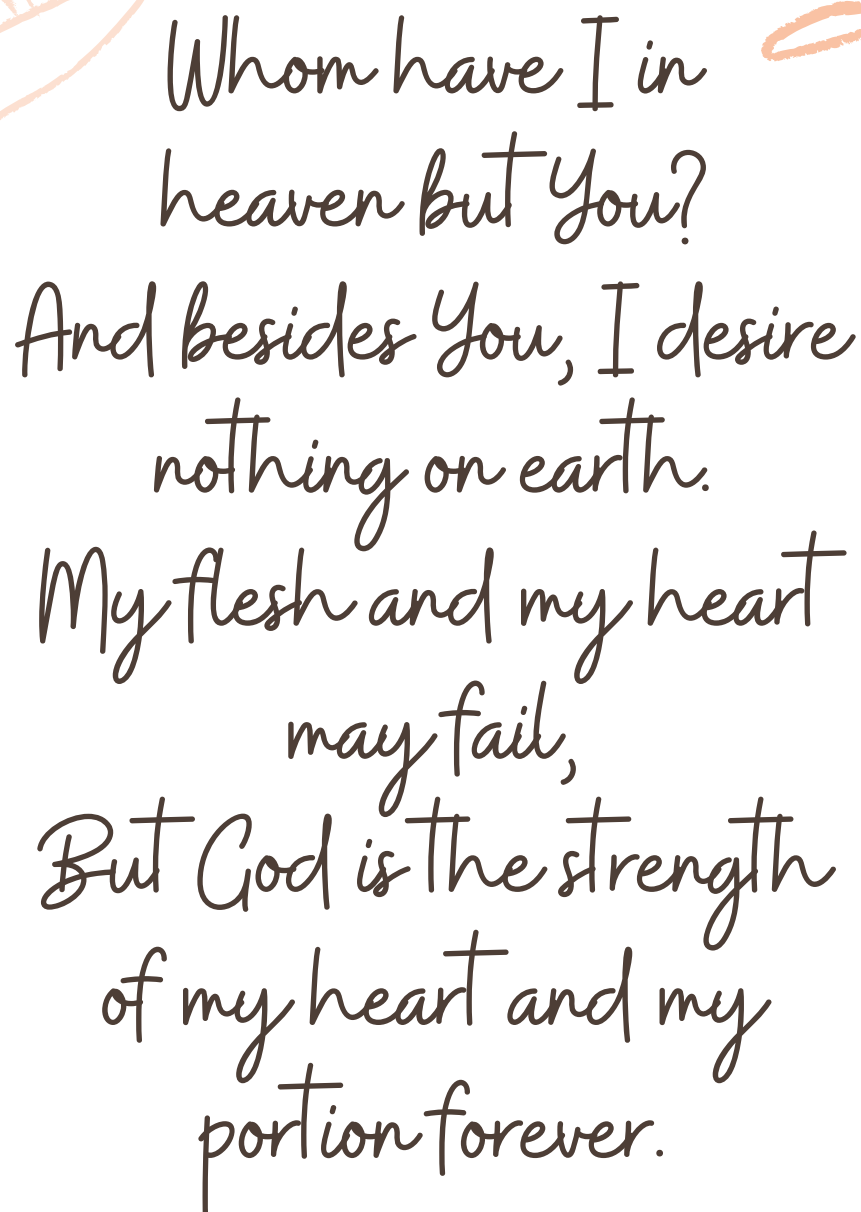 Whom have I in
heaven but You?
And besides You, I desire
nothing on earth.
My flesh and my heart
may fail,
But God is the strength
of my heart and my
portion forever.